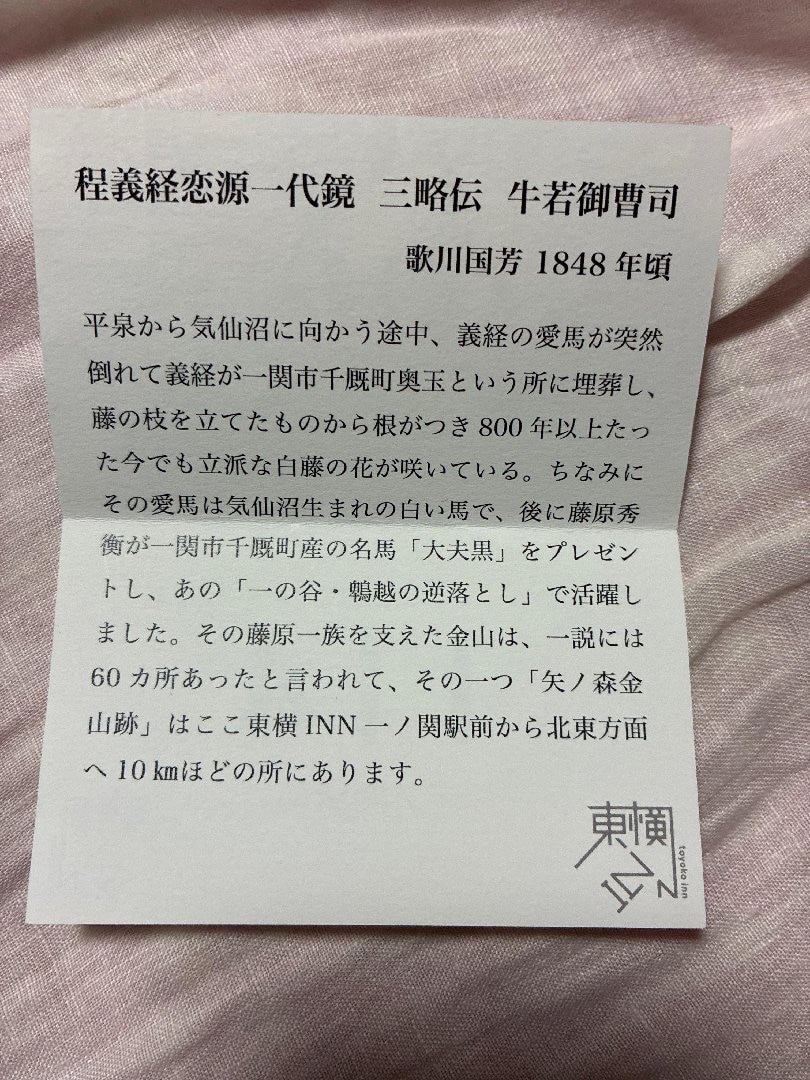 程義経恋源一代鏡 三略伝 牛若御曹司
歌川国芳 1848 年頃
平泉から気仙沼に向かう途中、義経の愛馬が突然
倒れて義経が一関市千厩町奥玉という所に埋葬し、
藤の枝を立てたものから根がつき 800 年以上たっ
た今でも立派な白藤の花が咲いている。ちなみに
その愛馬は気仙沼生まれの白い馬で、後に藤原秀
衡が一関市千厩町産の名馬「大夫黒」をプレゼン
トし、あの「一の谷・鵯越の逆落とし」で活躍し
ました。その藤原一族を支えた金山は、一説には
60 カ所あったと言われて、その一つ「矢ノ森金
山跡」はここ東横 INN 一ノ関駅前から北東方面
へ 10 ㎞ほどの所にあります。
東横INN
toyoko inn